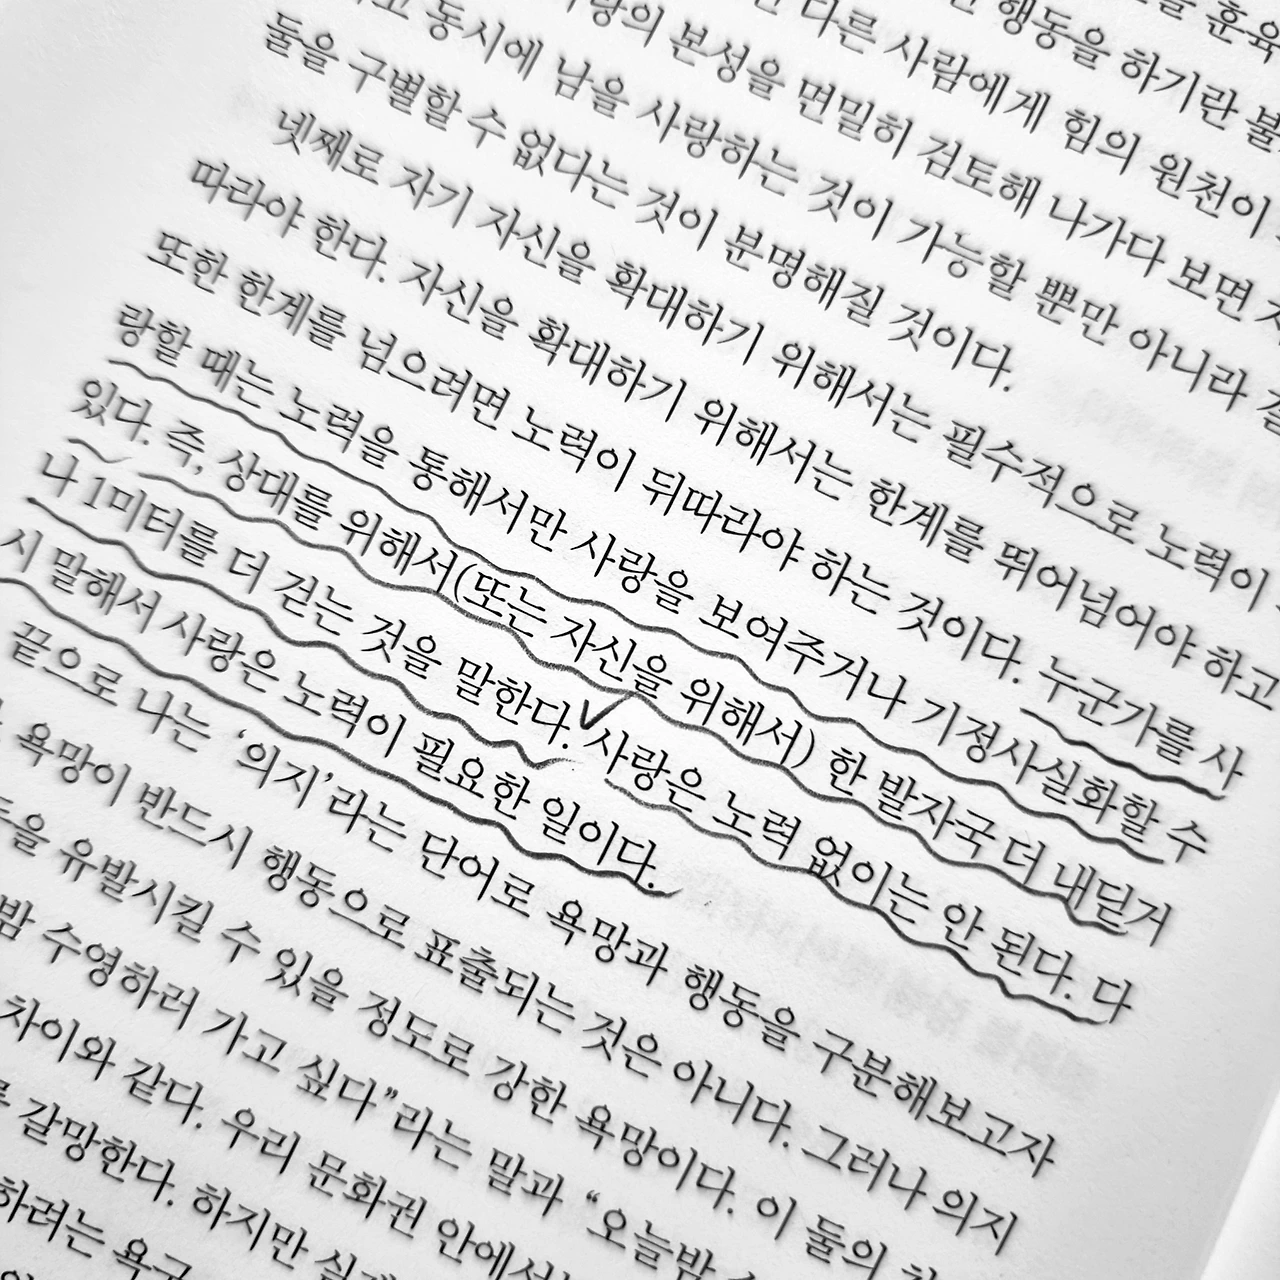 훈육
행동을 하기란 불
다른 사람에게 힘의 원천이
사랑의 본성을 면밀히 검토해 나가다 보면
동시에 남을 사랑하는 것이 가능할 뿐만 아니라
둘을 구별할 수 없다는 것이 분명해질 것이다.
넷째로 자기 자신을 확대하기 위해서는 필수적으로 노력이
따라야 한다. 자신을 확대하기 위해서는 한계를 뛰어넘어야 하고
또한 한계를 넘으려면 노력이 뒤따라야 하는 것이다. 누군가를 사
랑할 때는 노력을 통해서만 사랑을 보여주거나 기정사실화할 수
있다. 즉, 상대를 위해서(또는 자신을 위해서) 한 발자국 더 내딛거
나 1미터를 더 걷는 것을 말한다. 사랑은 노력 없이는 안 된다. 다
시 말해서 사랑은 노력이 필요한 일이다.
끝으로 나는 ‘의지’라는 단어로 욕망과 행동을 구분해보고자
욕망이 반드시 행동으로 표출되는 것은 아니다. 그러나 의지
유발시킬 수 있을 정도로 강한 욕망이다. 이 둘의
밤 수영하러 가고 싶다”라는 말과 “오늘밤
차이와 같다. 우리 문화권 안에서
갈망한다. 하지만
하려는 욕구